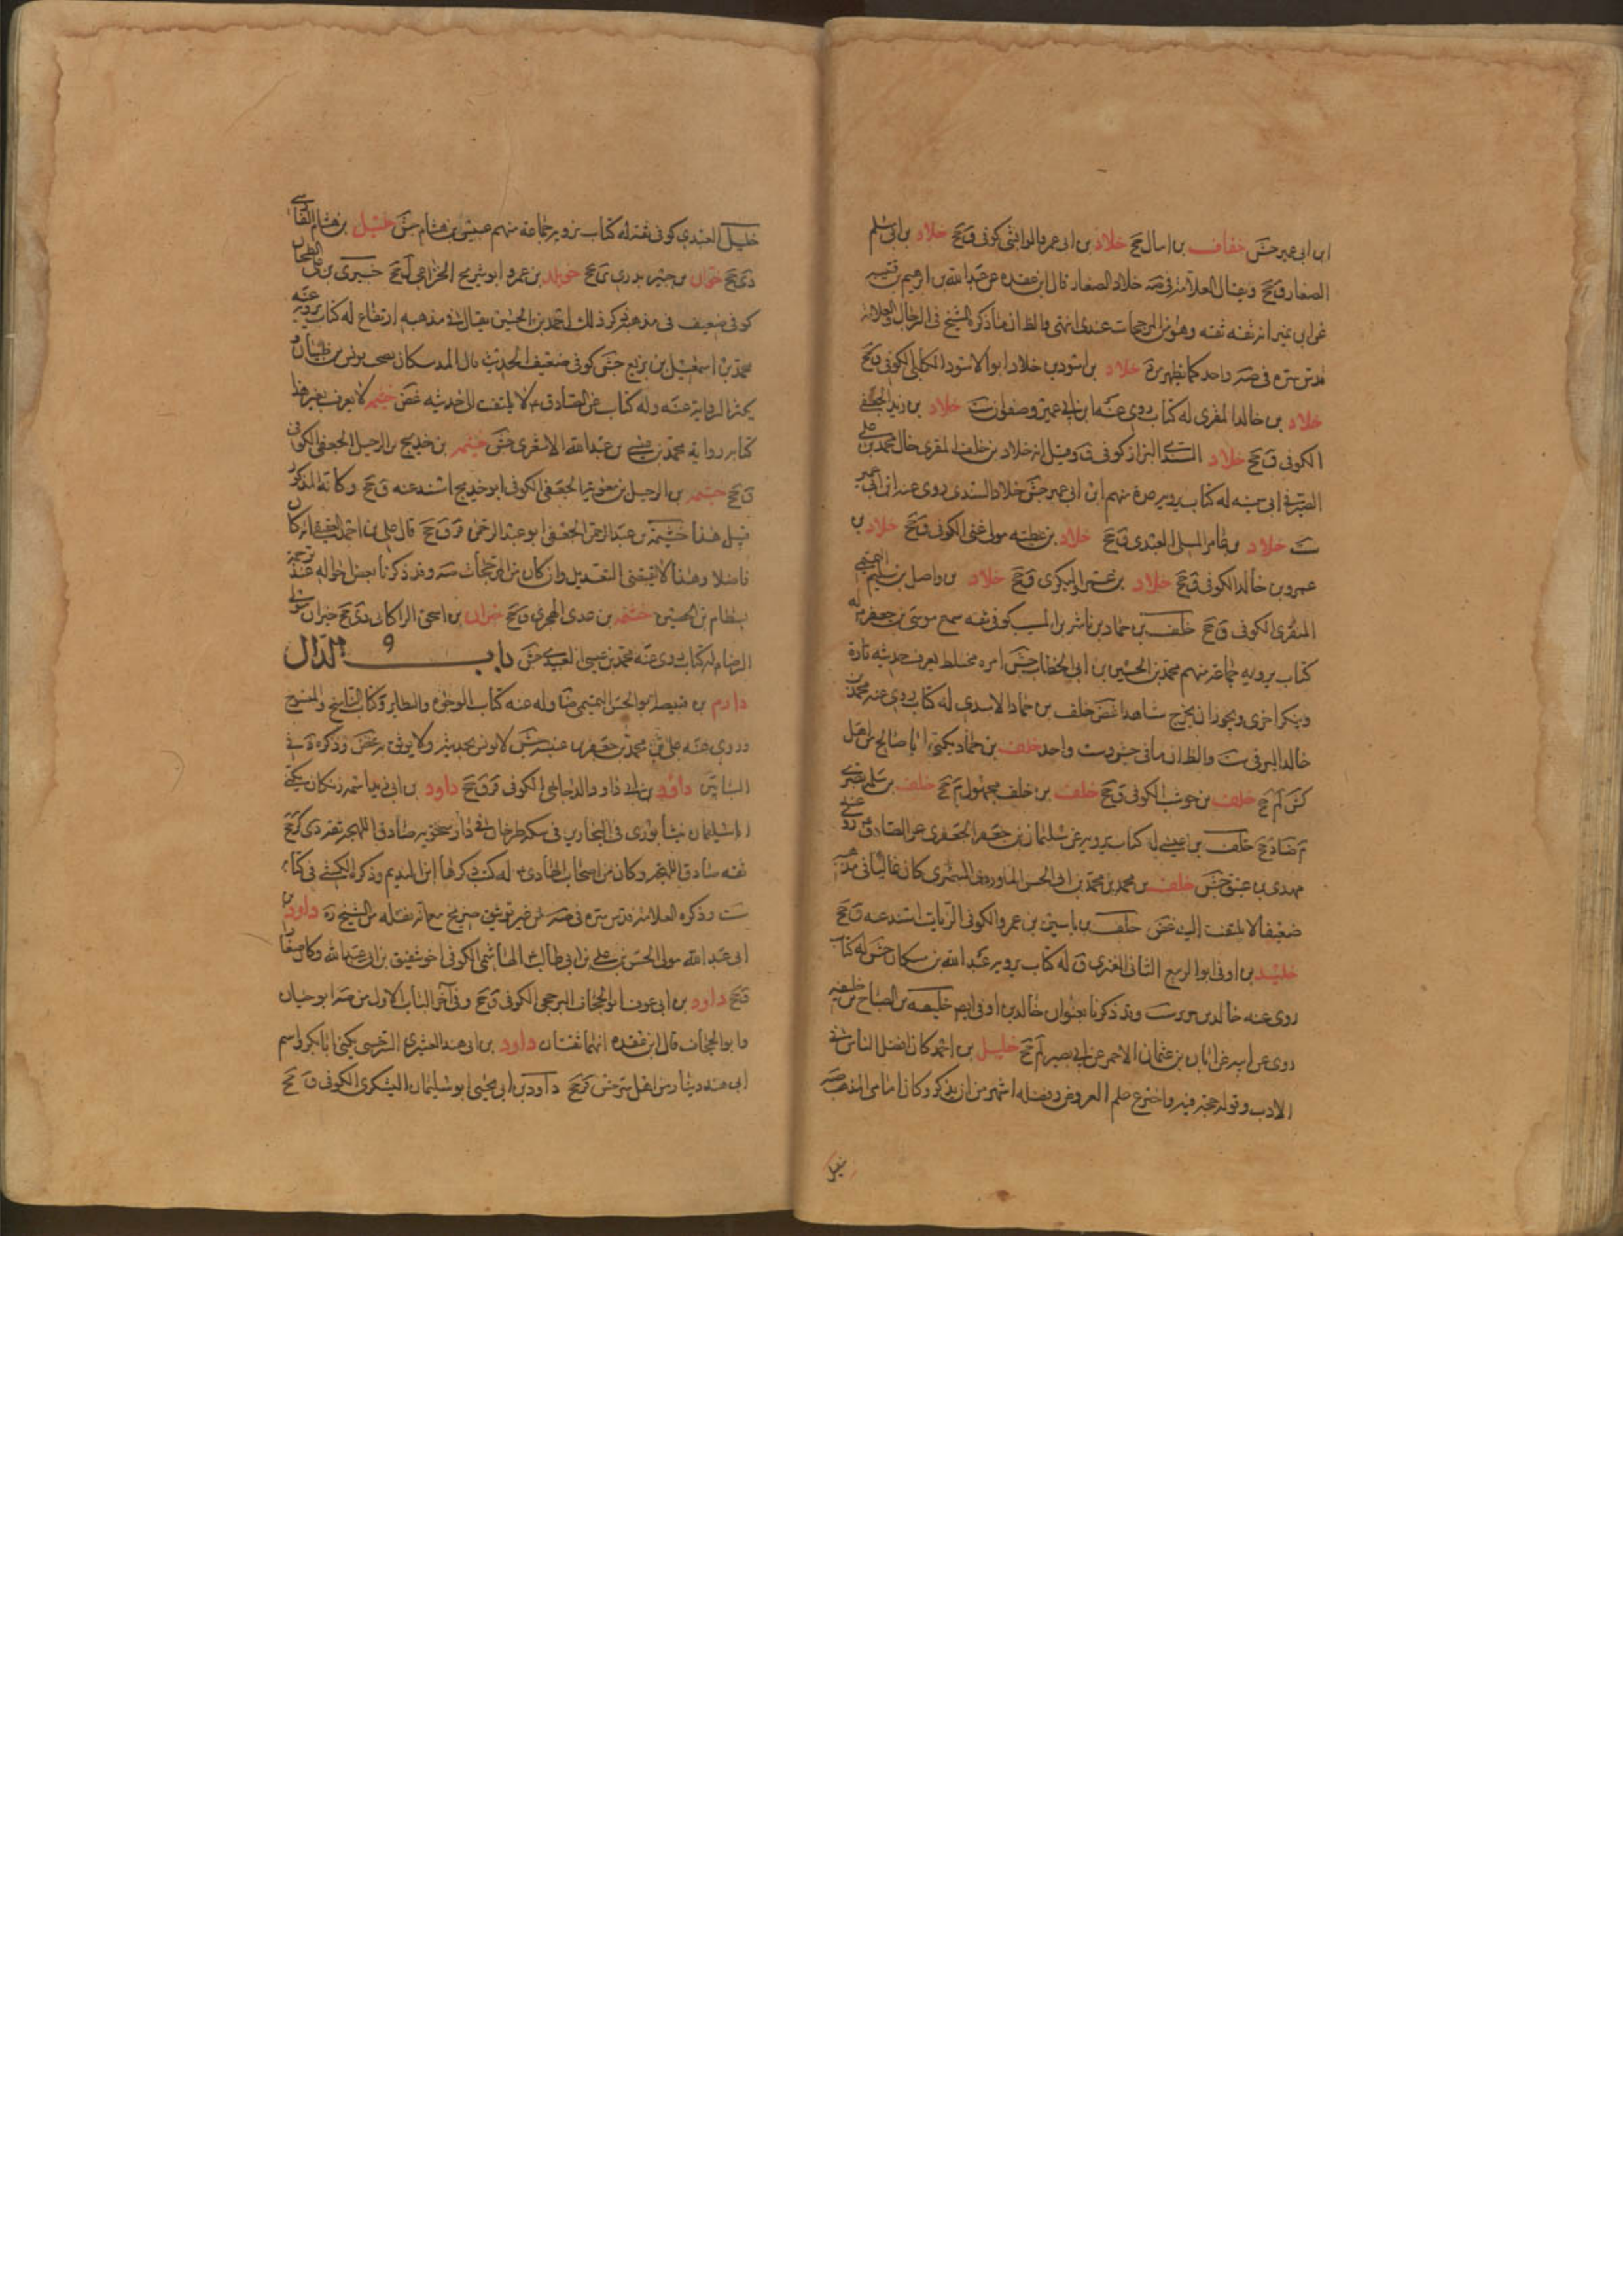 ابن ابى عمير جش خفاف بن اسال جح خلاد بن ابى عمرو الوابشى كوفى ق جح خلاد بن ابى مسلم
الصفار ق جح وقال العلامة فى صه خلاد الصفار قال ابن عقده عن عبد الله بن ابرهيم بن قتيبه
عن ابن نمير انه ثقه ثقه وهو من المرجحات عندى انتهى والظ ان ما ذكره الشيخ فى الرجال والعلامة
قدس سره فى صه واحد كما يظهر من خلاد بن اسود بن خلاد ابو الاسود الكلبى الكوفى ق جح
خلاد بن خالد المقرى له كتاب روى عنه ابن ابى عمير وصفوان ست خلاد بن زيد الجعفى
الكوفى ق جح خلاد السندى البزاز كوفى ق وقيل انه خلاد بن خلف المقرى خال محمد بن على
الصيرفى ابى سمينه له كتاب يرويه عدة منهم ابن ابى عمير جش خلاد السندى روى عنه ابن ابى عمير
ست خلاد بن عامر المسلى العبدى ق جح خلاد بن عطيه مولى غنى الكوفى ق جح خلاد بن
عمرو بن خالد الكوفى ق جح خلاد بن عمير البكرى ق جح خلاد بن واصل بن سليم التميمى
المنقرى الكوفى ق جح خلف بن حماد بن ناشر بن المسيب كوفى ثقه سمع موسى بن جعفر ع له
كتاب يرويه جماعة منهم محمد بن الحسين بن ابى الخطاب جش امره مختلط يعرف حديثه تارة
وينكر اخرى ويجوز ان يخرج شاهدا غض خلف بن حماد الاسدى له كتاب روى عنه محمد بن
خالد البرقى ست والظ ان ما فى جش وست واحد خلف بن حماد يكنى ابا صالح من اهل
كش لم جح خلف بن حوشب الكوفى ق جح خلف بن خلف مجهول م جح خلف بن سلمه بصرى
م ضا د جح خلف بن عيسى له كتاب يرويه عن سليمان بن جعفر الجعفرى عن الصادق ع روى عنه
مهدى بن عتيق جش خلف بن محمد بن محمد بن ابى الحسن الماوردى البصرى كان غاليا فى مذهبه
ضعيفا لا يلتفت اليه غض خلف بن ياسين بن عمرو الكوفى الزيات اسند عنه ق جح
خليد بن اوفى ابو الربيع الشامى العنزى ق له كتاب يرويه عبد الله بن مسكان جش له كتاب
روى عنه خالد بن جرير ست وقد ذكرنا بعنوان خالد بن اوفى ايضا خليفه بن الصباح بن خليفه
روى عن ابيه عن ابان بن عثمان الاحمر عن ابى بصير لم جح خليل بن احمد كان افضل الناس فى
الادب وقوله حجة فيه واخترع علم العروض وفضله اشهر من ان يذكر وكان امامى المذهب صه
خليل
خليل العبدى كوفى ثقة له كتاب يرويه جماعة منهم عبيس بن هشام جش خليل بن هشام الفارسى
دى جح خوات بن جبير بدرى ى جح خويلد بن عمرو ابو شريح الخزاعى ل جح خيبرى بن على الطحان
كوفى ضعيف فى مذهبه ذكر ذلك احمد بن الحسين يقال فى مذهبه ارتفاع له كتاب يرويه عنه
محمد بن اسمعيل بن بزيع جش كوفى ضعيف الحديث غال المذهب كان يصحب يونس بن ظبيان و
يكثر الرواية عنه وله كتاب عن الصادق ع لا يلتفت الى حديثه غض خيثم لا يعرف بغير هذا
كتابه رواية محمد بن عيسى بن عبد الله الاشعرى جش خيثمه بن خديج بن الرحيل الجعفى الكوفى
ق جح خيثمه بن الرحيل بن معوية الجعفى الكوفى ابو خديج اسند عنه ق جح وكانه المذكور
قبل هذا خيثمة بن عبد الرحمن الجعفى ابو عبد الرحمن قر ق جح قال على بن احمد العقيقى انه كان
فاضلا وهذا لا يقتضى التعديل وان كان من المرجحات صه وقد ذكرنا بعض احواله عند ترجمة
بسطام بن الحصين خيثمه بن عدى الهجرى ق جح خيران بن اسحق الراكانى دى جح خيران مولى
الرضا ع له كتاب روى عنه محمد بن عيسى العبيدى جش باب الدال
دارم بن قبيصه ابو الحسن التميمى ضا وله عنه كتاب الوجوه والنظاير وكتاب الناسخ والمنسوخ
وروى عنه على بن محمد بن جعفر بن عنبسه جش لا يونس بحديثه ولا يوثق به غض وذكره د فى
البابين داود بن ابى داود الدجاجى الكوفى قر ق جح داود بن ابى زيد اسمه زنكان يكنى
ابا سليمان نيشابورى فى النجارين فى سكة طرخان فى دار سختويه صادق اللهجه ثقه دى كر جح
ثقه صادق اللهجه وكان من اصحاب الهادى ع له كتب ذكرها ابن النديم وذكره الكشى فى كتابه
ست وذكره العلامة قدس سره فى صه من غير توثيق صريح مع انه نقله من الشيخ ره داود بن
ابى عبد الله مولى الحسن بن على بن ابى طالب ع الهاشمى الكوفى اخو شقيق بن ابى عبد الله وكان صفارا
ق جح داود بن ابى عوف ابو الجحاف البرجمى الكوفى ق جح وفى آخر الباب الاول من صه ابو حيان
وابو الجحاف قال ابن عقده انهما ثقتان داود بن ابى هند القشيرى السرخسى يكنى ابا بكر واسم
ابى هند دينار من اهل سرخس قر جح داود بن ابى يحيى ابو سليمان اليشكرى الكوفى ق جح